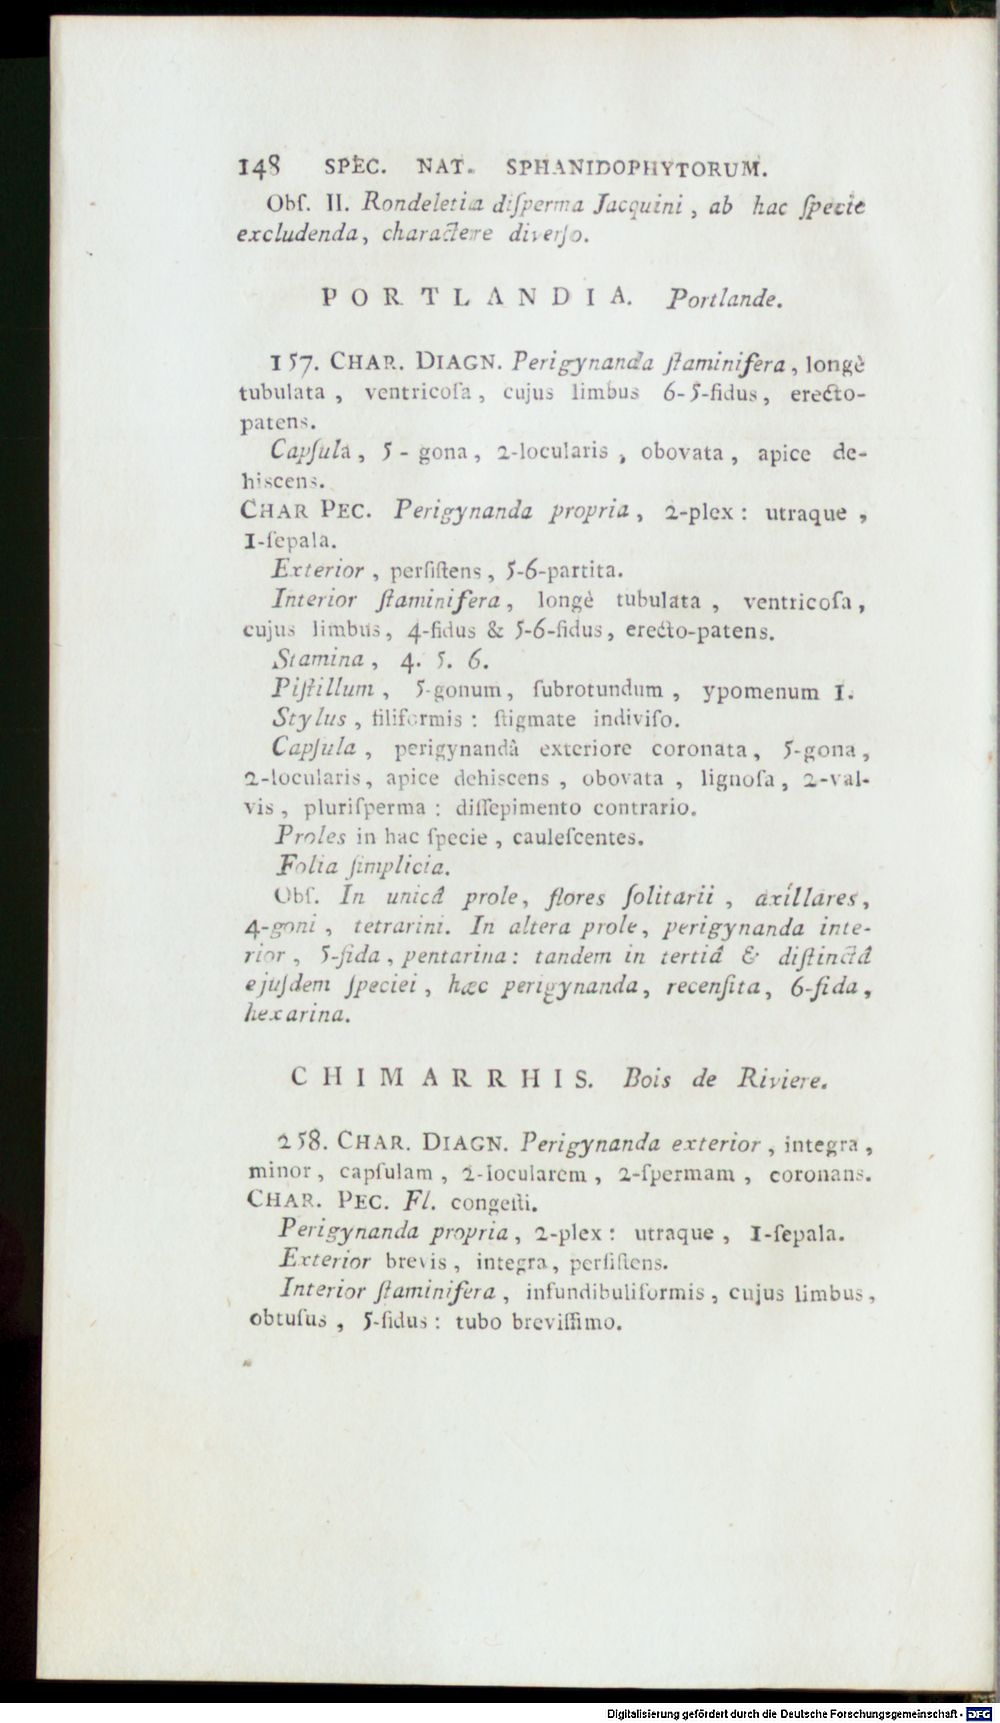 148 SPEC. NAT. SPHANIDOPHYTORUM.
Obſ. II. Rondeletia diſperma Jacquini, ab hac ſpecie
excludenda, charactere diverſo.
PORTLANDIA. Portlande.
157. CHAR. DIAGN. Perigynanda ſtaminifera, longè
tubulata, ventricoſa, cujus limbus 6-5-fidus, erecto-
patens.
Capſula, 5-gona, 2-locularis, obovata, apice de-
hiscens.
CHAR PEC. Perigynanda propria, 2-plex: utraque,
1-ſepala.
Exterior, perſiſtens, 5-6-partita.
Interior ſtaminifera, longè tubulata, ventricoſa,
cujus limbus, 4-fidus & 5-6-fidus, erecto-patens.
Stamina, 4. 5. 6.
Piſtillum, 5-gonum, ſubrotundum, ypomenum 1.
Stylus, filiformis: ſtigmate indiviſo.
Capſula, perigynandâ exteriore coronata, 5-gona,
2-locularis, apice dehiscens, obovata, lignoſa, 2-val-
vis, pluriſperma: diſſepimento contrario.
Proles in hac ſpecie, cauleſcentes.
Folia ſimplicia.
Obſ. In unicâ prole, flores ſolitarii, axillares,
4-goni, tetrarini. In altera prole, perigynanda inte-
rior, 5-fida, pentarina: tandem in tertiâ & diſtinctâ
ejuſdem ſpeciei, hæc perigynanda, recenſita, 6-fida,
hexarina.
CHIMARRHIS. Bois de Riviere.
258. CHAR. DIAGN. Perigynanda exterior, integra,
minor, capſulam, 2-locularem, 2-ſpermam, coronans.
CHAR. PEC. Fl. congeſti.
Perigynanda propria, 2-plex: utraque, 1-ſepala.
Exterior brevis, integra, perſiſtens.
Interior ſtaminifera, infundibuliformis, cujus limbus,
obtuſus, 5-fidus: tubo breviſſimo.
Digitalisierung gefördert durch die Deutsche Forschungsgemeinschaft - DFG